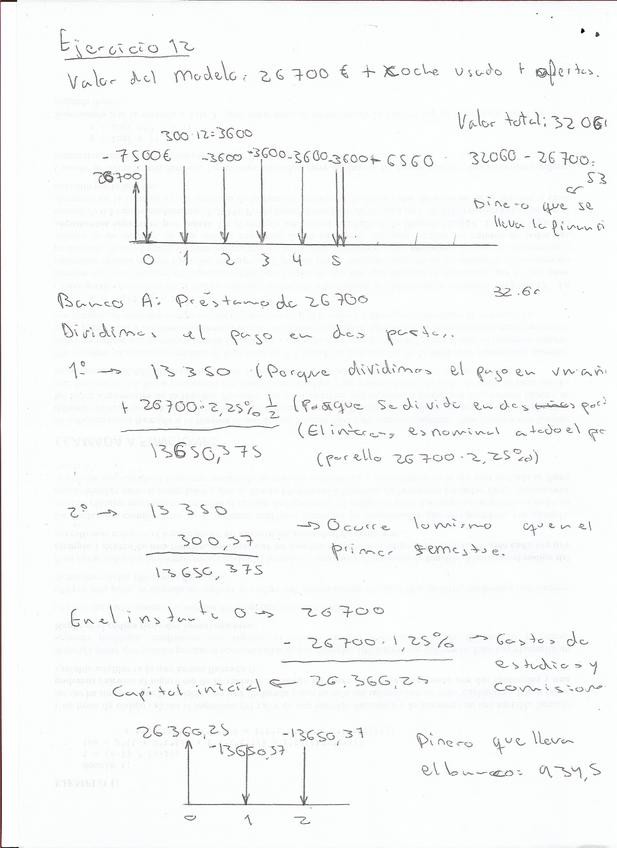 Ejercicio 12
Valor del Modelo: 26 700 € + coche usado + ofertas.
Valor total: 32 06
300·12=3600
- 7500€ -3600 -3600 -3600 -3600 + 6560 32060 - 26700:
26700 53
Dinero que se
lleva la financi
0 1 2 3 4 5
Banco A: Préstamo de 26700 32.60
Dividimos el pago en dos partes..
1º → 13 350 (Porque dividimos el pago en un añ
+ 26700·2,25% 1/2 (Porque se divide en dos par
(El interes, es nominal a todo el pe
13650,375 (por ello 26700·2,25%)
2º → 13 350
300,37 → Ocurre lo mismo que en el
13650,375 primer semestre.
En el instante 0 → 26700
- 26700·1,25% → Gastos de
estudios y
Capital inicial ← 26.366,25 comision
26360,25 -13650,37
-13650,37 Dinero que lleva
el banco: 934,5
0 1 2